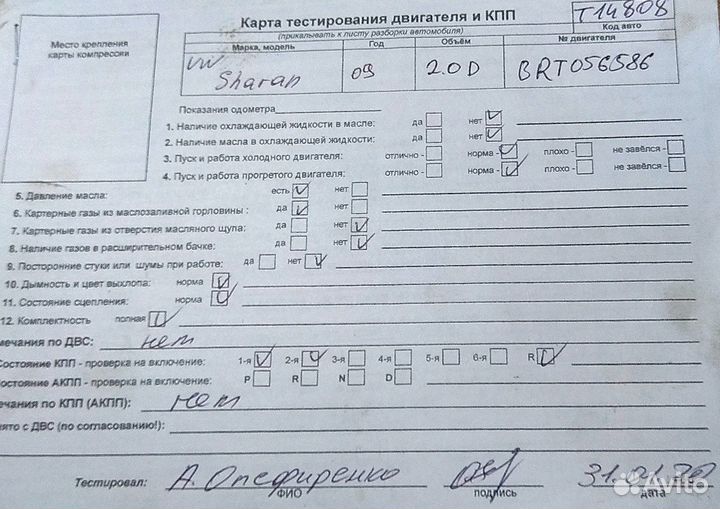 Карта тестирования двигателя и КПП
T14808
(прикалывать к листу разборки автомобиля)
Код авто
Место крепления
карты компрессии
Марка, модель Год Объём № двигателя
VW
Sharan 09 2.0D BRT056586
Показания одометра
1. Наличие охлаждающей жидкости в масле: да нет
2. Наличие масла в охлаждающей жидкости: да нет
3. Пуск и работа холодного двигателя: отлично - норма - плохо - не завёлся -
4. Пуск и работа прогретого двигателя: отлично - норма - плохо - не завёлся -
5. Давление масла: есть нет
6. Картерные газы из маслозаливной горловины : да нет
7. Картерные газы из отверстия масляного щупа: да нет
8. Наличие газов в расширительном бачке: да нет
9. Посторонние стуки или шумы при работе: да нет
10. Дымность и цвет выхлопа: норма
11. Состояние сцепления: норма
12. Комплектность полная
мечания по ДВС: нет
Состояние КПП - проверка на включение: 1-я 2-я 3-я 4-я 5-я 6-я R
Состояние АКПП - проверка на включение: P R N D
ечания по КПП (АКПП): нет
нято с ДВС (по согласованию!):
Тестировал: А. Опефиренко
ФИО подпись дата
Avito